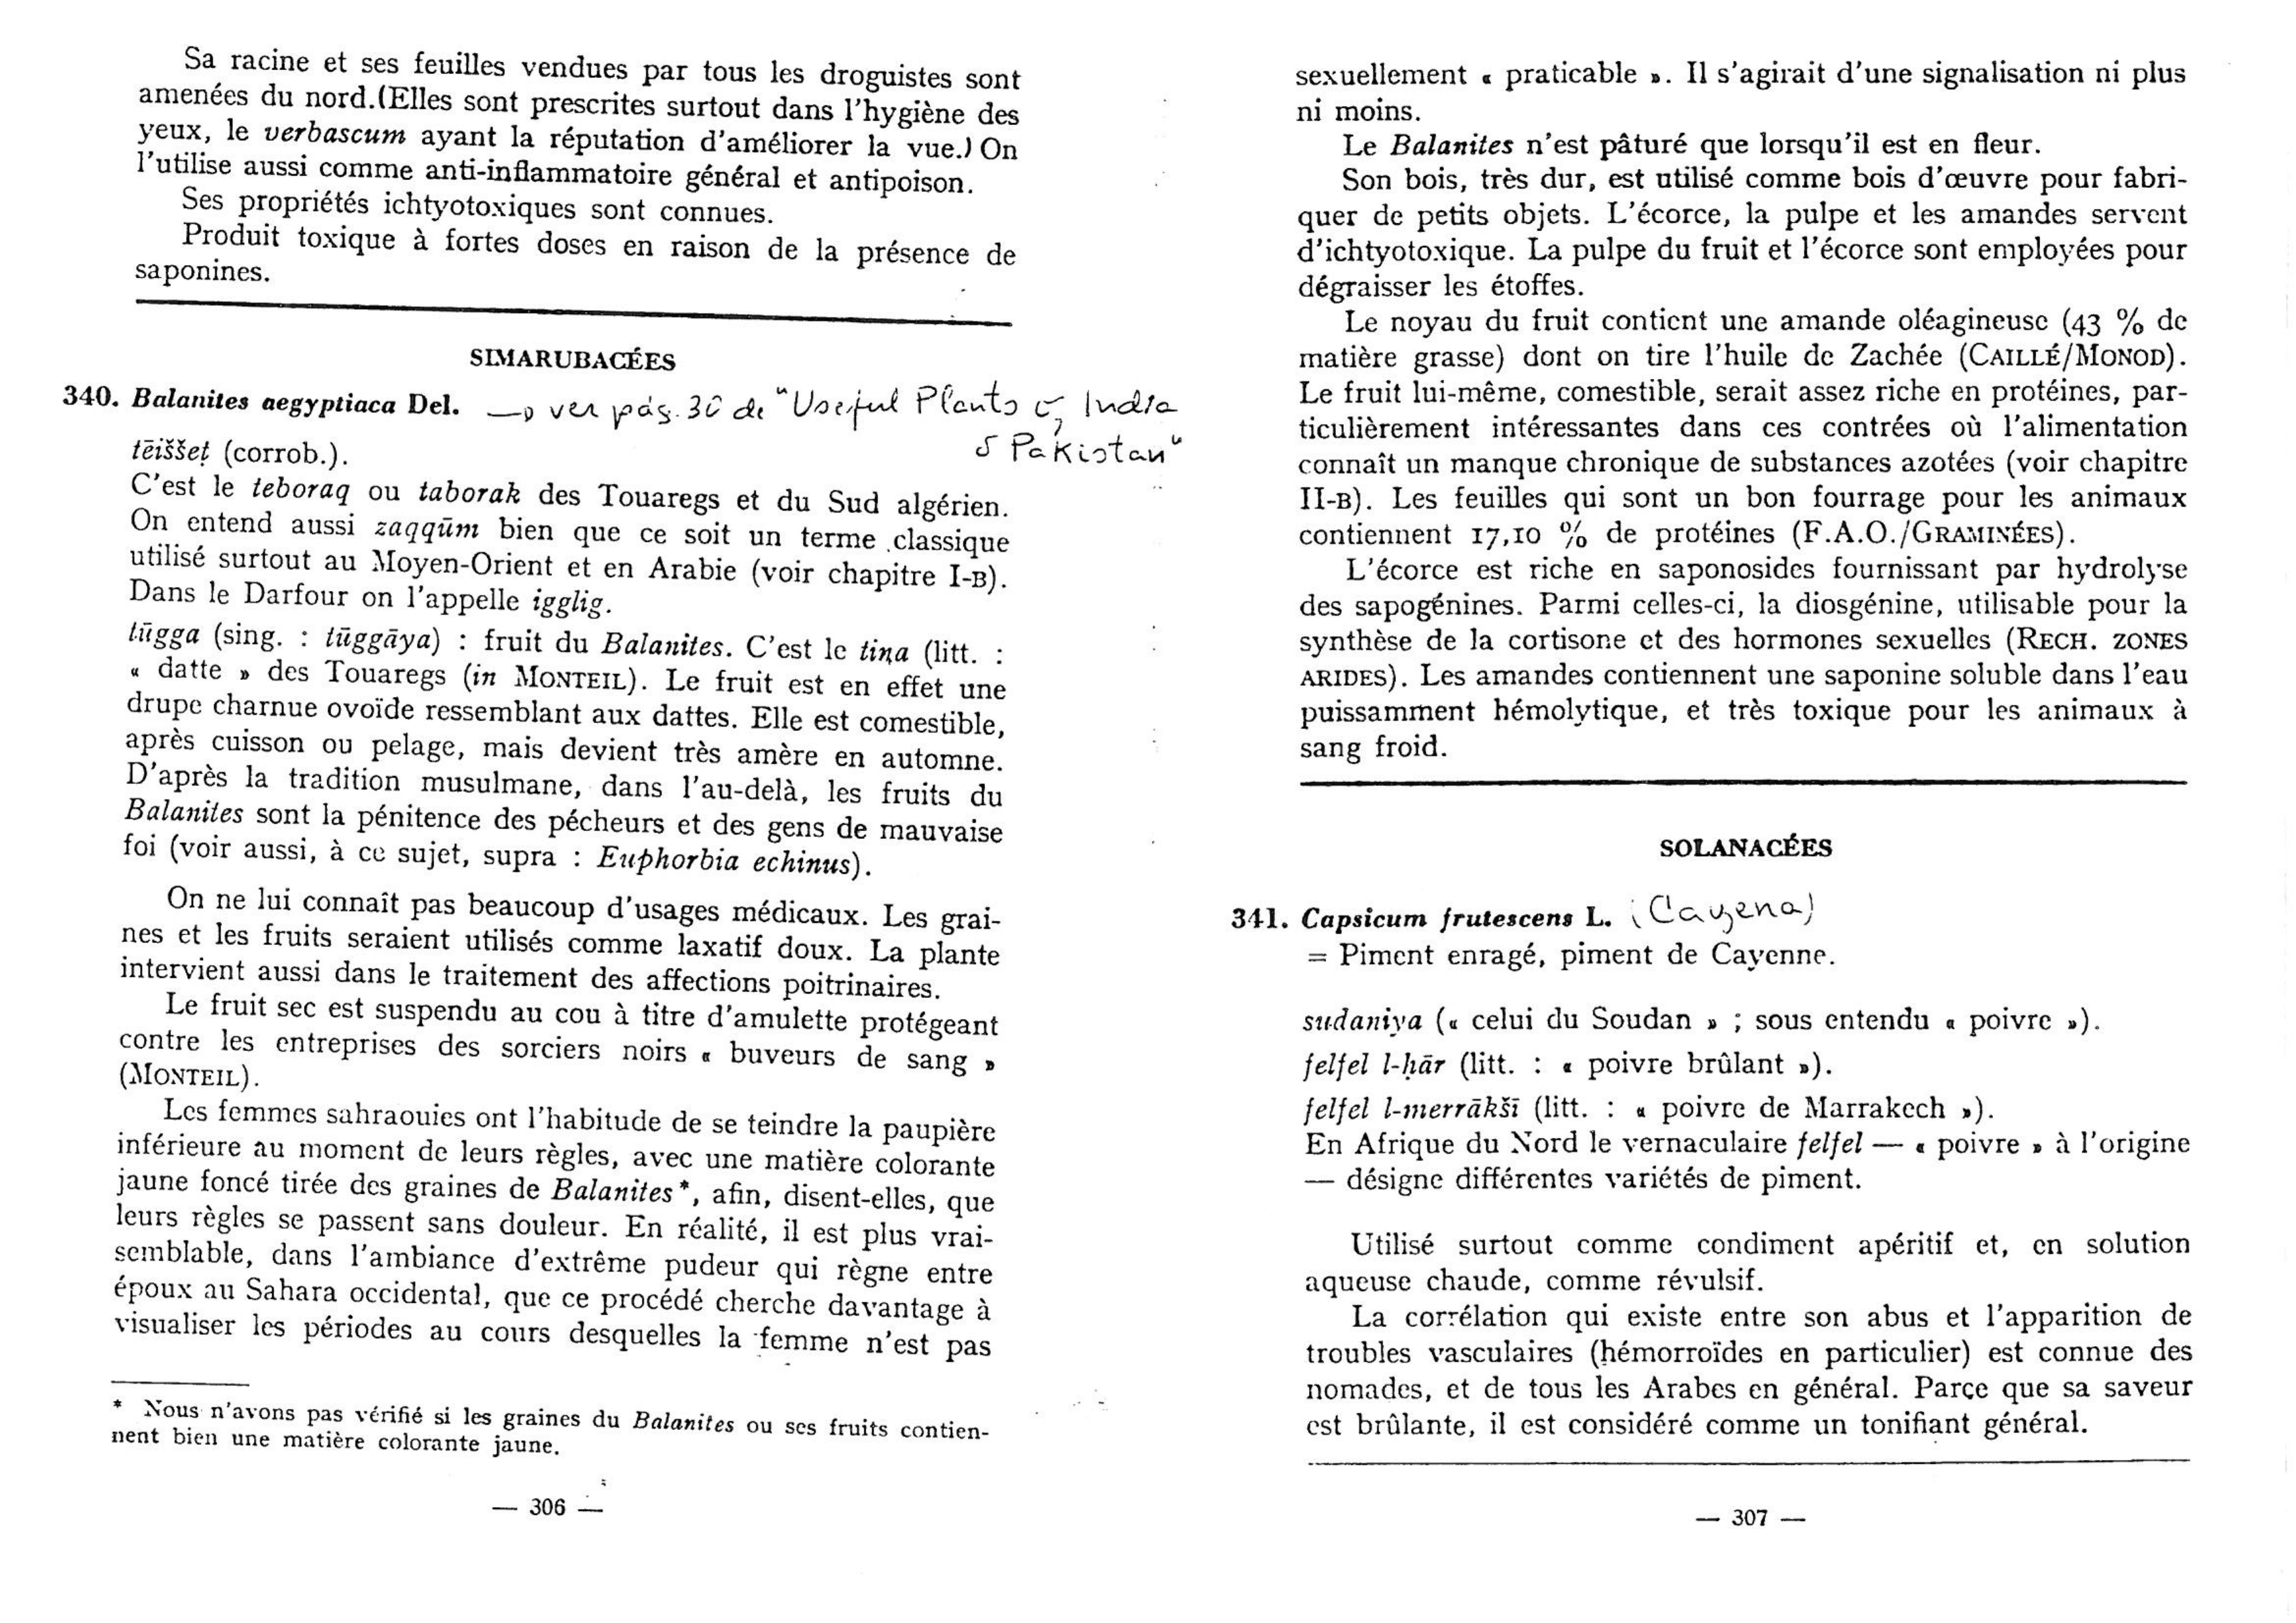 Sa racine et ses feuilles vendues par tous les droguistes sont
amenées du nord.(Elles sont prescrites surtout dans l'hygiène des
yeux, le verbascum ayant la réputation d'améliorer la vue.) On
l'utilise aussi comme anti-inflammatoire général et antipoison.
Ses propriétés ichtyotoxiques sont connues.
Produit toxique à fortes doses en raison de la présence de
saponines.
SIMARUBACÉES
340. Balanites aegyptiaca Del. → ver pág. 30 de "Useful Plants of India
& Pakistan"
tēiššeṭ (corrob.).
C'est le teboraq ou taborak des Touaregs et du Sud algérien.
On entend aussi zaqqūm bien que ce soit un terme classique
utilisé surtout au Moyen-Orient et en Arabie (voir chapitre I-B).
Dans le Darfour on l'appelle igglig.
tūgga (sing. : tūggāya) : fruit du Balanites. C'est le tiṇa (litt. :
« datte » des Touaregs (in MONTEIL). Le fruit est en effet une
drupe charnue ovoïde ressemblant aux dattes. Elle est comestible,
après cuisson ou pelage, mais devient très amère en automne.
D'après la tradition musulmane, dans l'au-delà, les fruits du
Balanites sont la pénitence des pécheurs et des gens de mauvaise
foi (voir aussi, à ce sujet, supra : Euphorbia echinus).
On ne lui connaît pas beaucoup d'usages médicaux. Les grai-
nes et les fruits seraient utilisés comme laxatif doux. La plante
intervient aussi dans le traitement des affections poitrinaires.
Le fruit sec est suspendu au cou à titre d'amulette protégeant
contre les entreprises des sorciers noirs « buveurs de sang »
(MONTEIL).
Les femmes sahraouies ont l'habitude de se teindre la paupière
inférieure au moment de leurs règles, avec une matière colorante
jaune foncé tirée des graines de Balanites*, afin, disent-elles, que
leurs règles se passent sans douleur. En réalité, il est plus vrai-
semblable, dans l'ambiance d'extrême pudeur qui règne entre
époux au Sahara occidental, que ce procédé cherche davantage à
visualiser les périodes au cours desquelles la femme n'est pas
* Nous n'avons pas vérifié si les graines du Balanites ou ses fruits contien-
nent bien une matière colorante jaune.
— 306 —
sexuellement « praticable ». Il s'agirait d'une signalisation ni plus
ni moins.
Le Balanites n'est pâturé que lorsqu'il est en fleur.
Son bois, très dur, est utilisé comme bois d'œuvre pour fabri-
quer de petits objets. L'écorce, la pulpe et les amandes servent
d'ichtyotoxique. La pulpe du fruit et l'écorce sont employées pour
dégraisser les étoffes.
Le noyau du fruit contient une amande oléagineuse (43 % de
matière grasse) dont on tire l'huile de Zachée (CAILLÉ/MONOD).
Le fruit lui-même, comestible, serait assez riche en protéines, par-
ticulièrement intéressantes dans ces contrées où l'alimentation
connaît un manque chronique de substances azotées (voir chapitre
II-B). Les feuilles qui sont un bon fourrage pour les animaux
contiennent 17,10 % de protéines (F.A.O./GRAMINÉES).
L'écorce est riche en saponosides fournissant par hydrolyse
des sapogénines. Parmi celles-ci, la diosgénine, utilisable pour la
synthèse de la cortisone et des hormones sexuelles (RECH. ZONES
ARIDES). Les amandes contiennent une saponine soluble dans l'eau
puissamment hémolytique, et très toxique pour les animaux à
sang froid.
SOLANACÉES
341. Capsicum frutescens L. (Cayena)
= Piment enragé, piment de Cayenne.
sudaniya (« celui du Soudan » ; sous entendu « poivre »).
felfel l-ḥār (litt. : « poivre brûlant »).
felfel l-merrākšī (litt. : « poivre de Marrakech »).
En Afrique du Nord le vernaculaire felfel — « poivre » à l'origine
— désigne différentes variétés de piment.
Utilisé surtout comme condiment apéritif et, en solution
aqueuse chaude, comme révulsif.
La corrélation qui existe entre son abus et l'apparition de
troubles vasculaires (hémorroïdes en particulier) est connue des
nomades, et de tous les Arabes en général. Parce que sa saveur
est brûlante, il est considéré comme un tonifiant général.
— 307 —